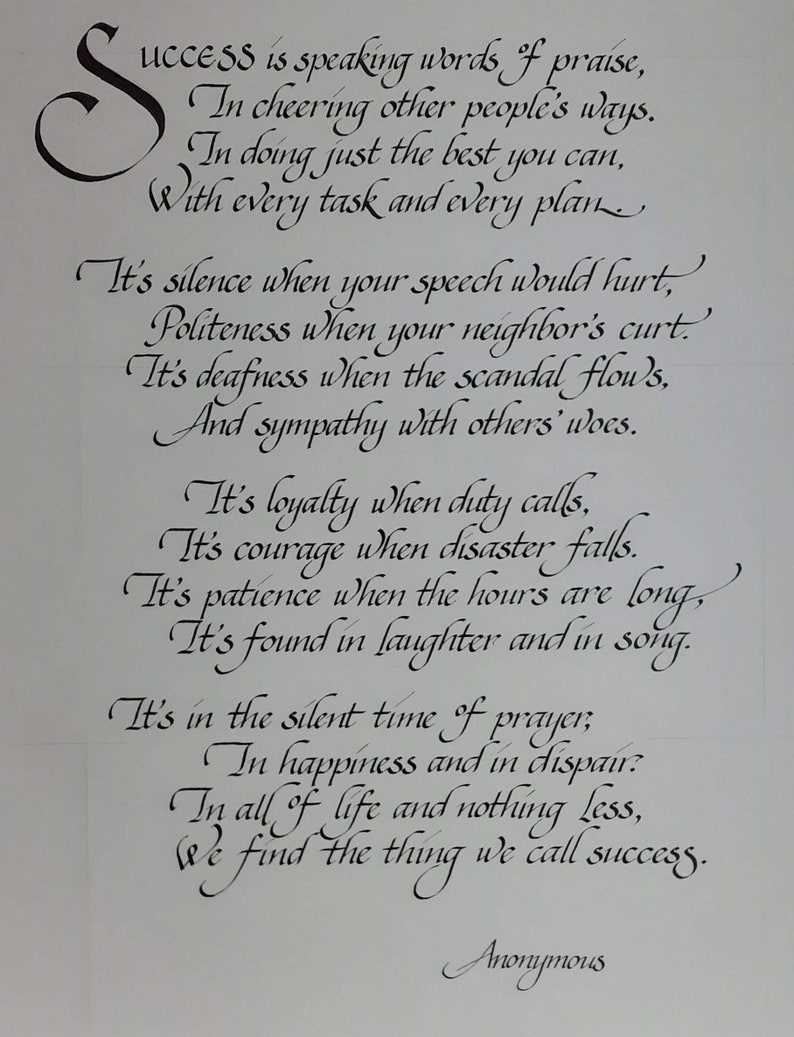 Success is speaking words of praise,
In cheering other people's ways.
In doing just the best you can,
With every task and every plan.
It's silence when your speech would hurt,
Politeness when your neighbor's curt.
It's deafness when the scandal flows,
And sympathy with others' woes.
It's loyalty when duty calls,
It's courage when disaster falls.
It's patience when the hours are long,
It's found in laughter and in song.
It's in the silent time of prayer,
In happiness and in dispair.
In all of life and nothing less,
We find the thing we call success.
Anonymous